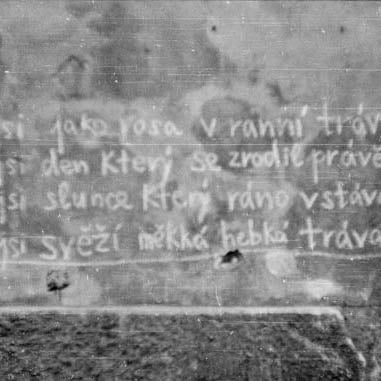 jsi jako rosa v ranní tráv
jsi den který se zrodil právě
jsi slunce který ráno vstáv
jsi svěží měkká hebká tráva